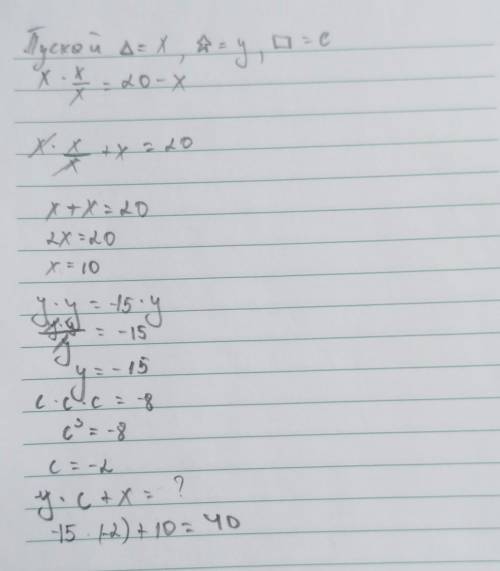 Пускай △ = x, ☆ = y, □ = c
x · x/x = 20 - x
x · x/x + x = 20
x + x = 20
2x = 20
x = 10
y · y = -15 · y
y·y/y = -15
y = -15
c · c · c = -8
c³ = -8
c = -2
y · c + x = ?
-15 · (-2) + 10 = 40